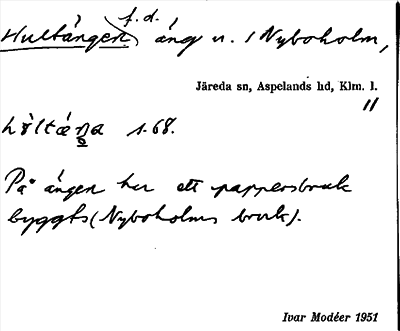 Hultängen f.d. äng u. / Nyboholm,
Järeda sn, Aspelands hd, Klm. l.
11
1.68.
På ängen har ett pappersbruk
byggts (Nyboholms bruk).
Ivar Modéer 1951